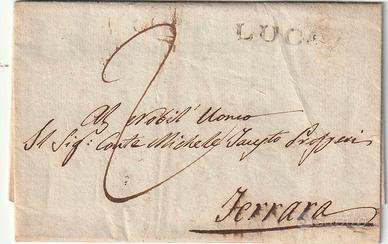 LUCCA
2
Al Nobil' Uomo
Il Sig: Conte Michele Fausto Prosperi
Ferrara